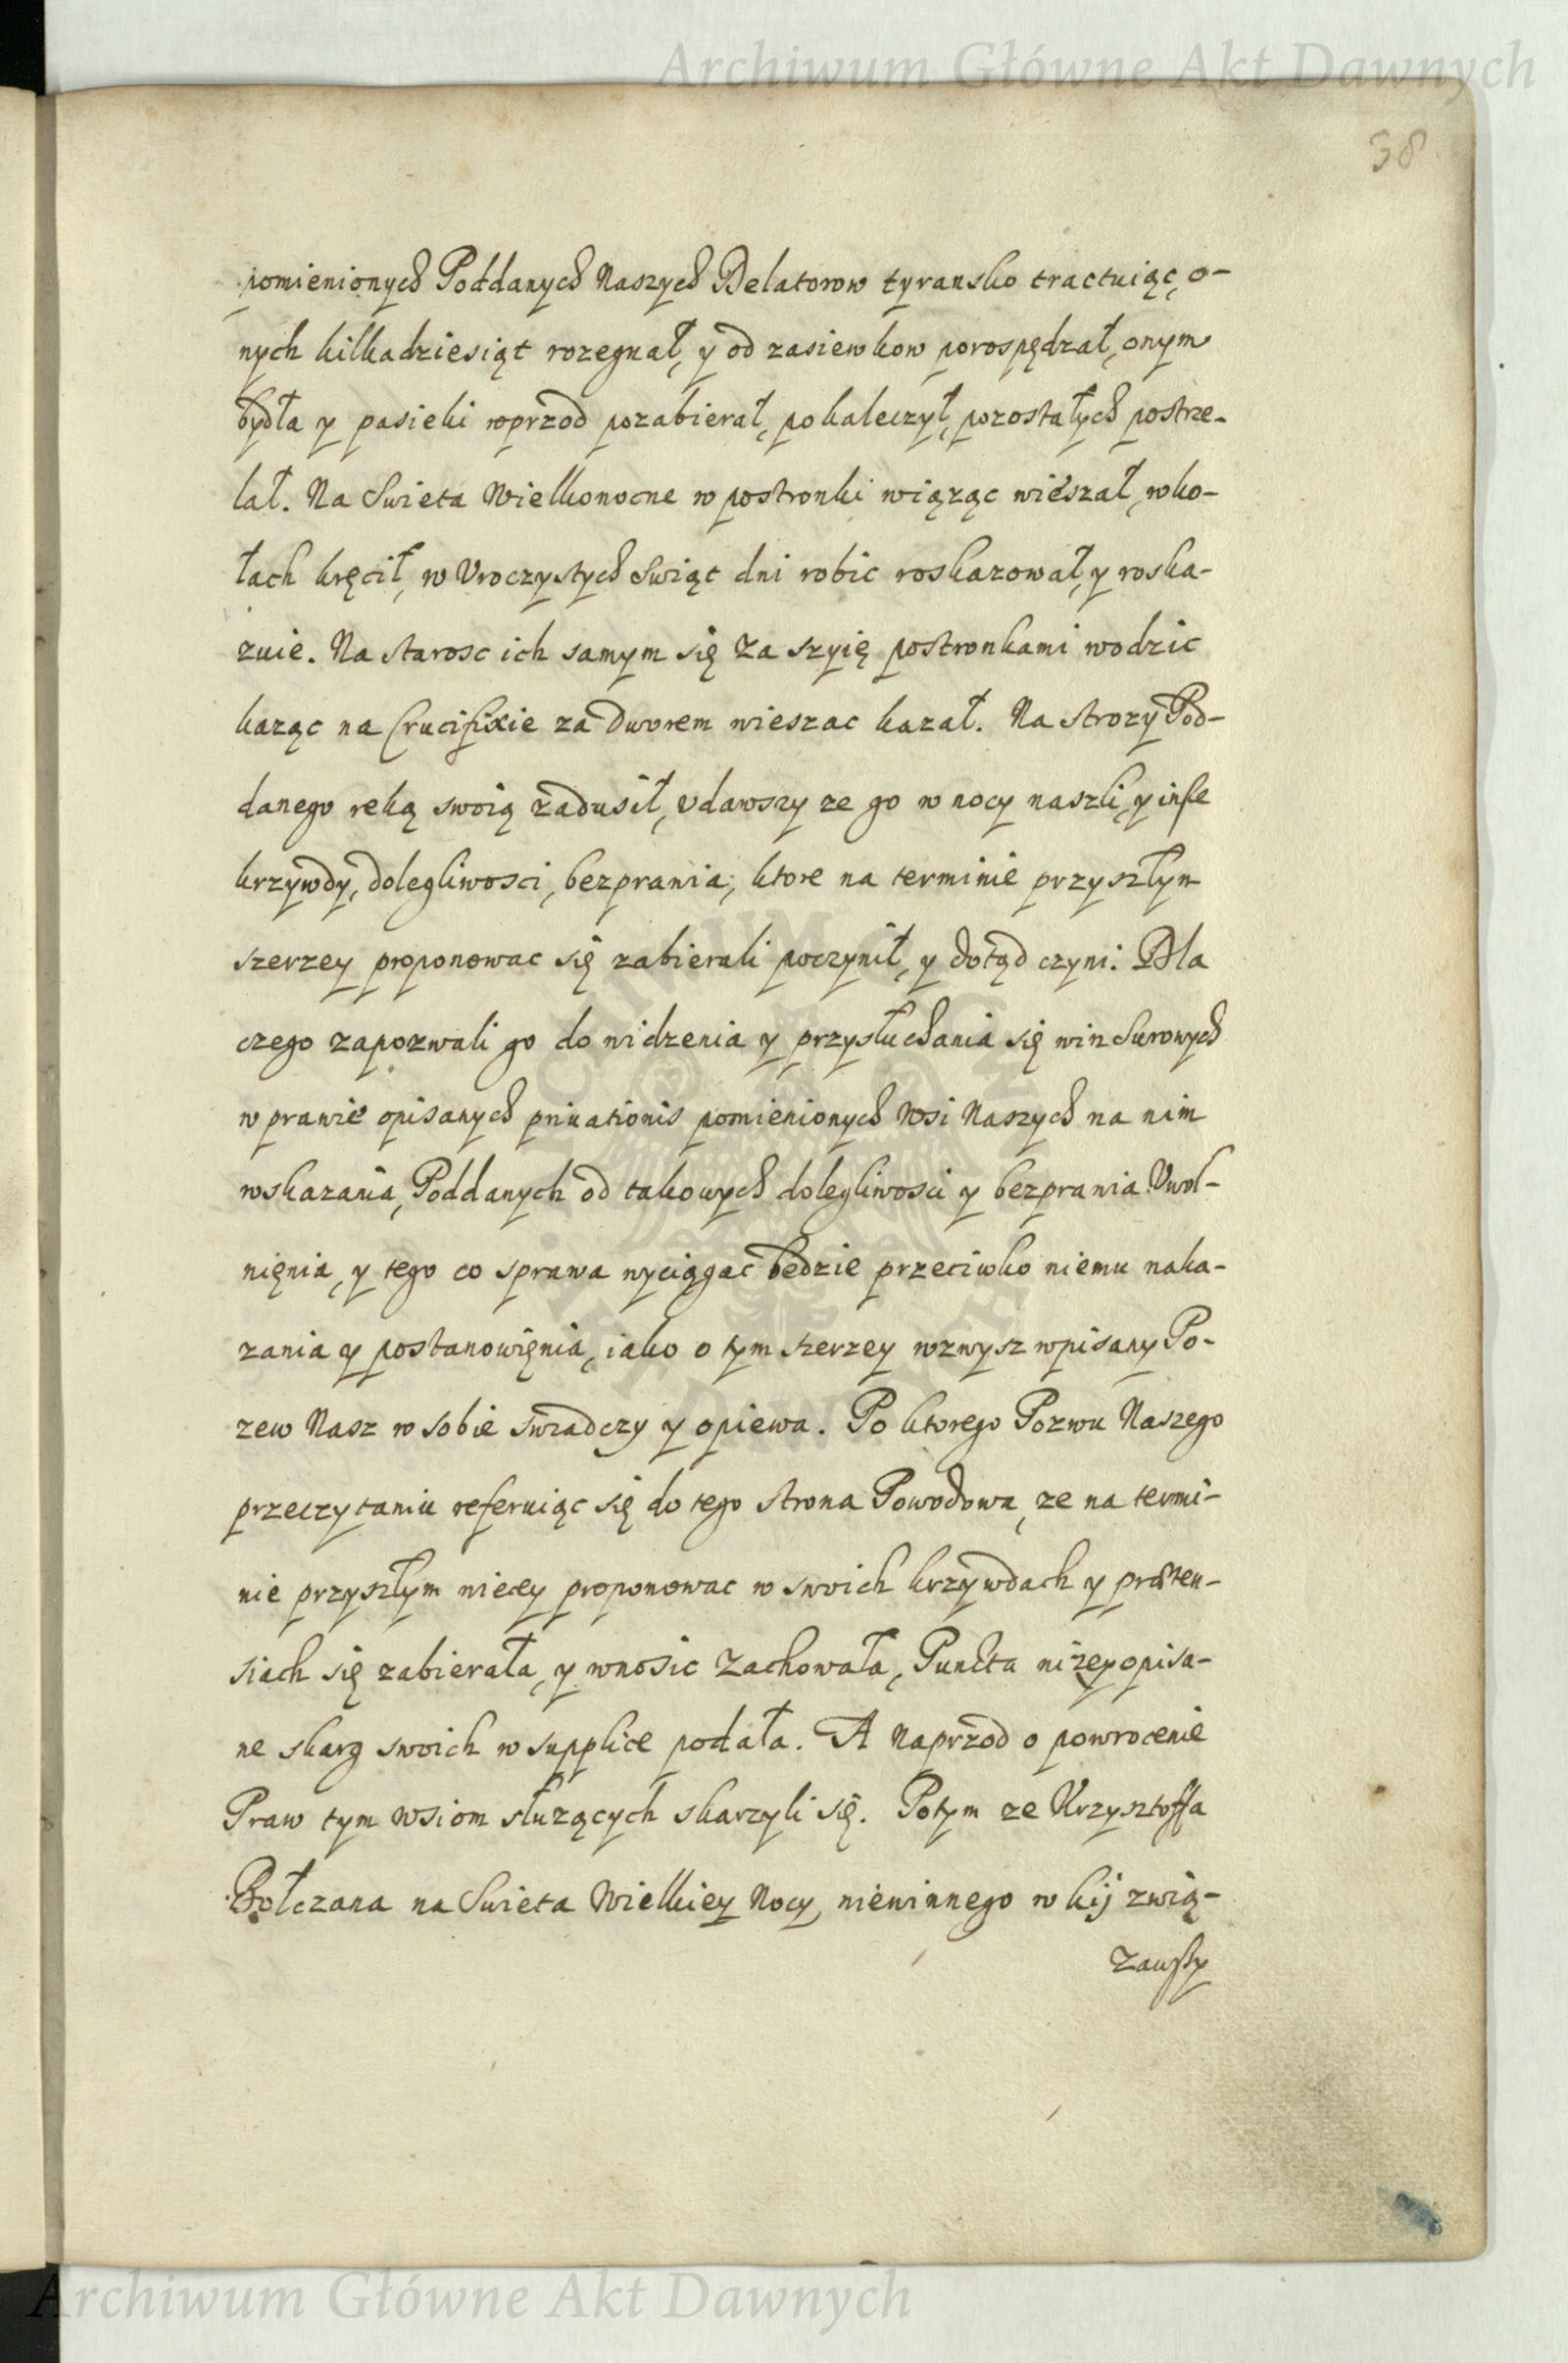 Archiwum Główne Akt Dawnych
38
pomienionych Poddanych Naszych Delatorow tyransko tractuiąc, o-
nych kilkadziesiąt rozegnał, y od zasiewkow porospędzał, onym
bydła y pasieki wprzod pozabierał, pokaleczył, pozostałych postrze-
lał. Na Swieta Wielkonocne w postronki wiążąc wieszał, wko-
łach kręcił, w Vroczystych Swiąt dni robic roskazował, y roska-
zuie. Na starosc ich samym się za szyię postronkami wodzic
każąc na Crucifixie za Dworem wieszac kazał. Na strozy Pod-
danego reką swoią zadusił, vdawszy ze go w nocy naszli, y insze
krzywdy, dolegliwosci, bezprawia, ktore na terminie przyszłym
szerzey proponowac się zabierali poczynił, y dotąd czyni: Dla
czego zapozwali go do widzenia y przysłuchania się win Surowych
w prawie opisanych priuationis pomienionych Wsi Naszych na nim
wskazania, Poddanych od takowych dolegliwosci y bezprawia Vwol-
nięnia, y tego co sprawa wyciągac będzie przeciwko niemu naka-
zania y postanowięnia, iako o tym szerzey wzwysz wpisany Po-
zew Nasz w sobie swiadczy y opiewa. Po ktorego Pozwu Naszego
przeczytaniu referuiąc się do tego strona Powodowa, ze na termi-
nie przyszłym wiecey proponowac w swoich krzywdach y præten-
siach się zabierała, y wnosic zachowała, Puncta nizey opisa-
ne skarg swoich w supplice podała. A naprzod o powrocenie
Praw tym wsiom słuzących skarzyli się. Potym ze Krzysztoffa
Bołczana na Swieta Wielkiey Nocy, niewinnego w kij zwią-
zawszy
Archiwum Główne Akt Dawnych